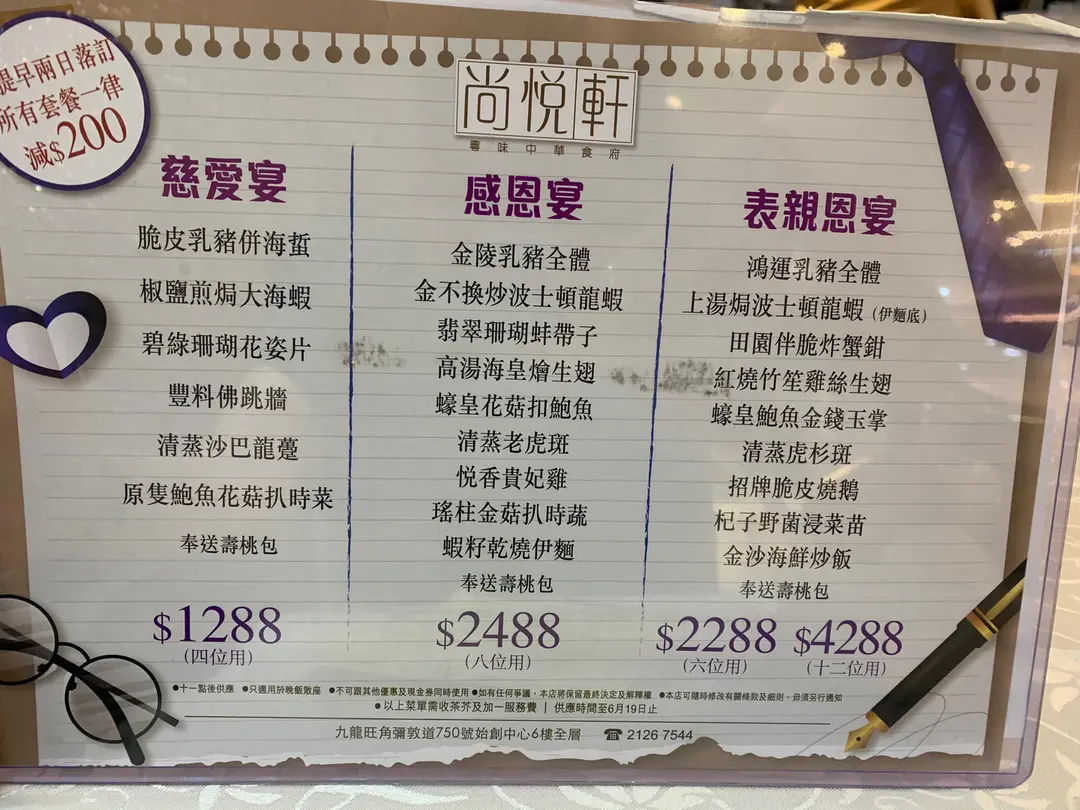 提早兩日落訂
所有套餐一律
減$200
尚悦軒
粵味中華食府
慈愛宴
脆皮乳豬併海蜇
椒鹽煎焗大海蝦
碧綠珊瑚花姿片
豐料佛跳牆
清蒸沙巴龍躉
原隻鮑魚花菇扒時菜
奉送壽桃包
$1288
(四位用)
感恩宴
金陵乳豬全體
金不換炒波士頓龍蝦
翡翠珊瑚蚌帶子
高湯海皇燴生翅
蠔皇花菇扣鮑魚
清蒸老虎斑
悦香貴妃雞
瑤柱金菇扒時蔬
蝦籽乾燒伊麵
奉送壽桃包
$2488
(八位用)
表親恩宴
鴻運乳豬全體
上湯焗波士頓龍蝦(伊麵底)
田園伴脆炸蟹鉗
紅燒竹笙雞絲生翅
蠔皇鮑魚金錢玉掌
清蒸虎杉斑
招牌脆皮燒鵝
杞子野菌浸菜苗
金沙海鮮炒飯
奉送壽桃包
$2288 $4288
(六位用) (十二位用)
●十一點後供應 ●只適用於晚飯散座 ●不可跟其他優惠及現金券同時使用 ●如有任何爭議，本店將保留最終決定及解釋權 ●本店可隨時修改有關條款及細則，毋須另行通知
●以上菜單需收茶芥及加一服務費 | 供應時間至6月19日止
九龍旺角彌敦道750號始創中心6樓全層 ☎ 2126 7544